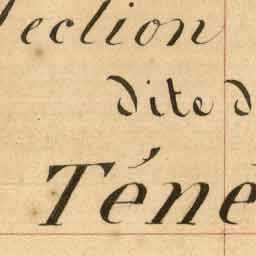 ection
dite d
Téné